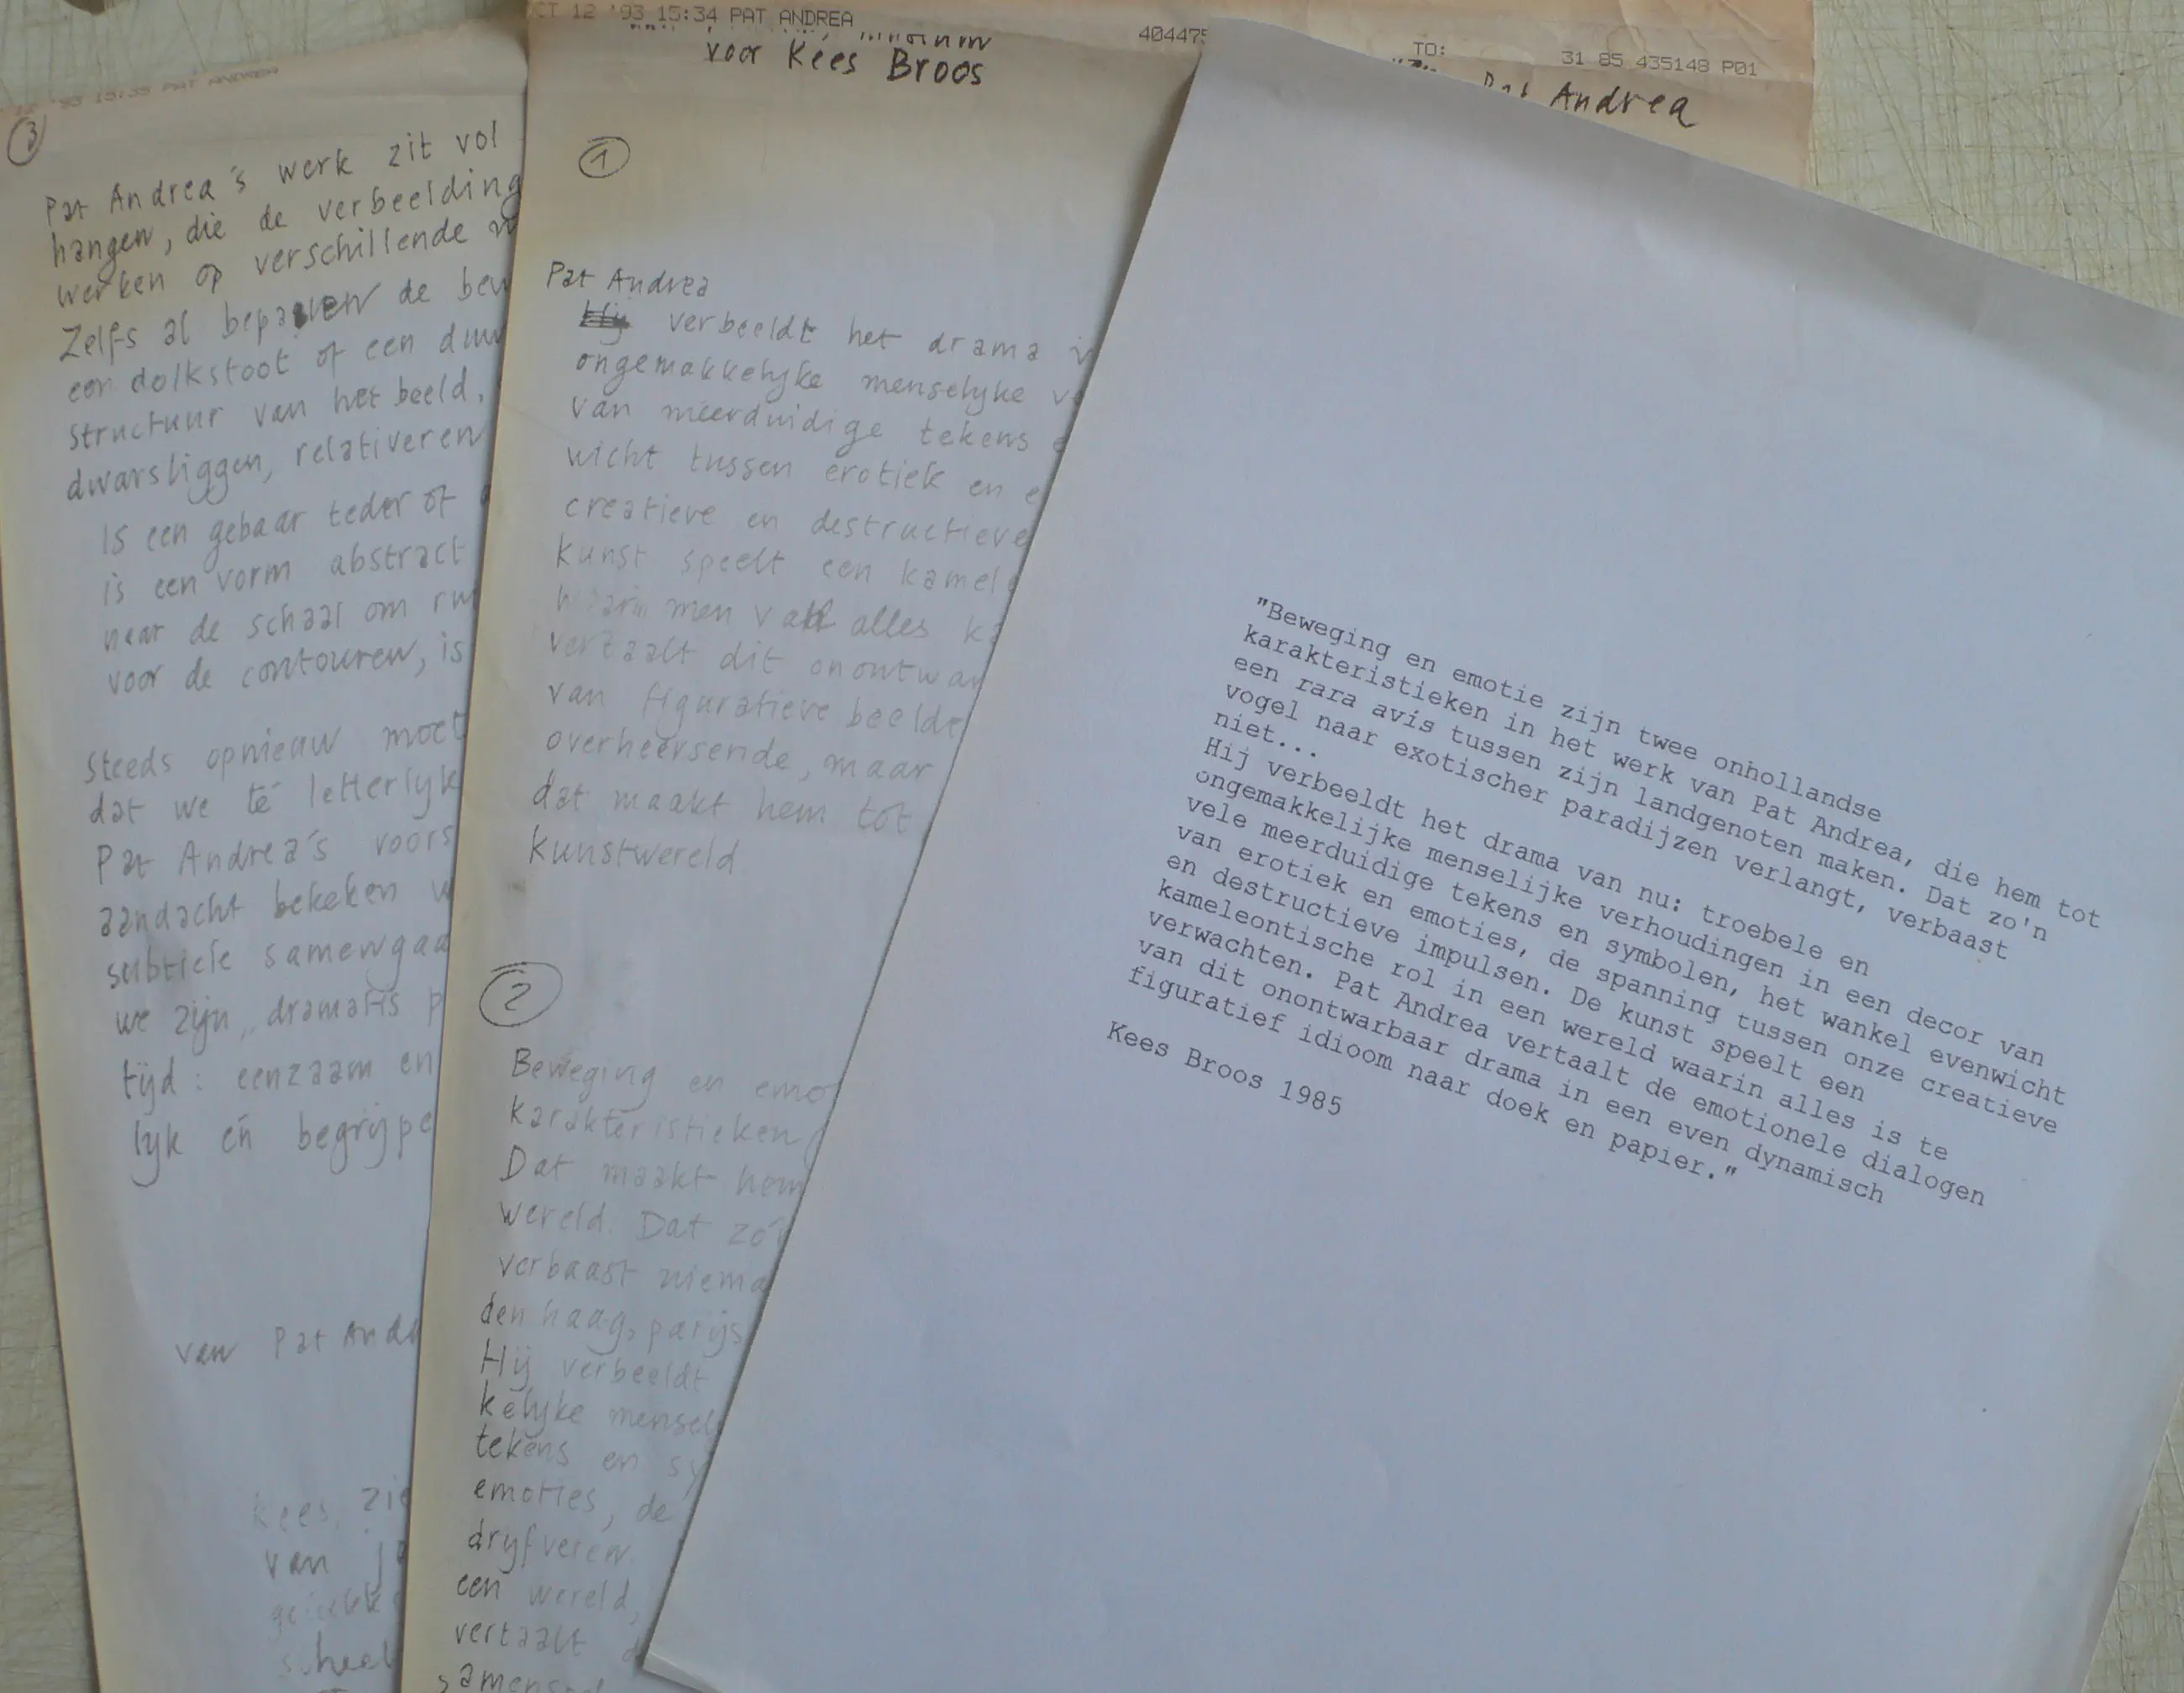 '93 15:35 PAT ANDREA
3
Pat Andrea's werk zit vol
hangen, die de verbeelding
werken op verschillende
Zelfs al bepalen de
een dolkstoot of een
structuur van het beeld.
dwarsliggen, relativeren
is een gebaar teder of
is een vorm abstract
near de schaal om
voor de contouren, is
steeds opnieuw moet
dat we té letterlyk
Pat Andrea's
aandacht bekeken
subtiele samengaa
we zijn „dramatis
tijd: eenzaam en
lyk én
van Pat
Kees,
van
OCT 12 '93 15:34 PAT ANDREA
404475
TO:
31 85 435148 P01
voor Kees Broos
Pat Andrea
1
Pat Andrea
Hij verbeeldt het drama
ongemakkelyke menselyke
van meerduidige tekens
wicht tussen erotiek en
creatieve en destructieve
kunst speelt een
men alles
vertaalt dit
van figuratieve
overheersende, maar
dat maakt hem tot
kunstwereld
2
Beweging en
karakteristieken
Dat maakt hem
wereld. Dat
verbaast
den haag, parijs
Hij verbeeldt
kelyke
tekens en
emoties, de
dryfveren.
een wereld,
vertaalt
"Beweging en emotie zijn twee onhollandse
karakteristieken in het werk van Pat Andrea, die hem tot
een rara avis tussen zijn landgenoten maken. Dat zo'n
vogel naar exotischer paradijzen verlangt, verbaast
niet...
Hij verbeeldt het drama van nu: troebele en
ongemakkelijke menselijke verhoudingen in een decor van
vele meerduidige tekens en symbolen, het wankel evenwicht
van erotiek en emoties, de spanning tussen onze creatieve
en destructieve impulsen. De kunst speelt een
kameleontische rol in een wereld waarin alles is te
verwachten. Pat Andrea vertaalt de emotionele dialogen
van dit onontwarbaar drama in een even dynamisch
figuratief idioom naar doek en papier."
Kees Broos 1985